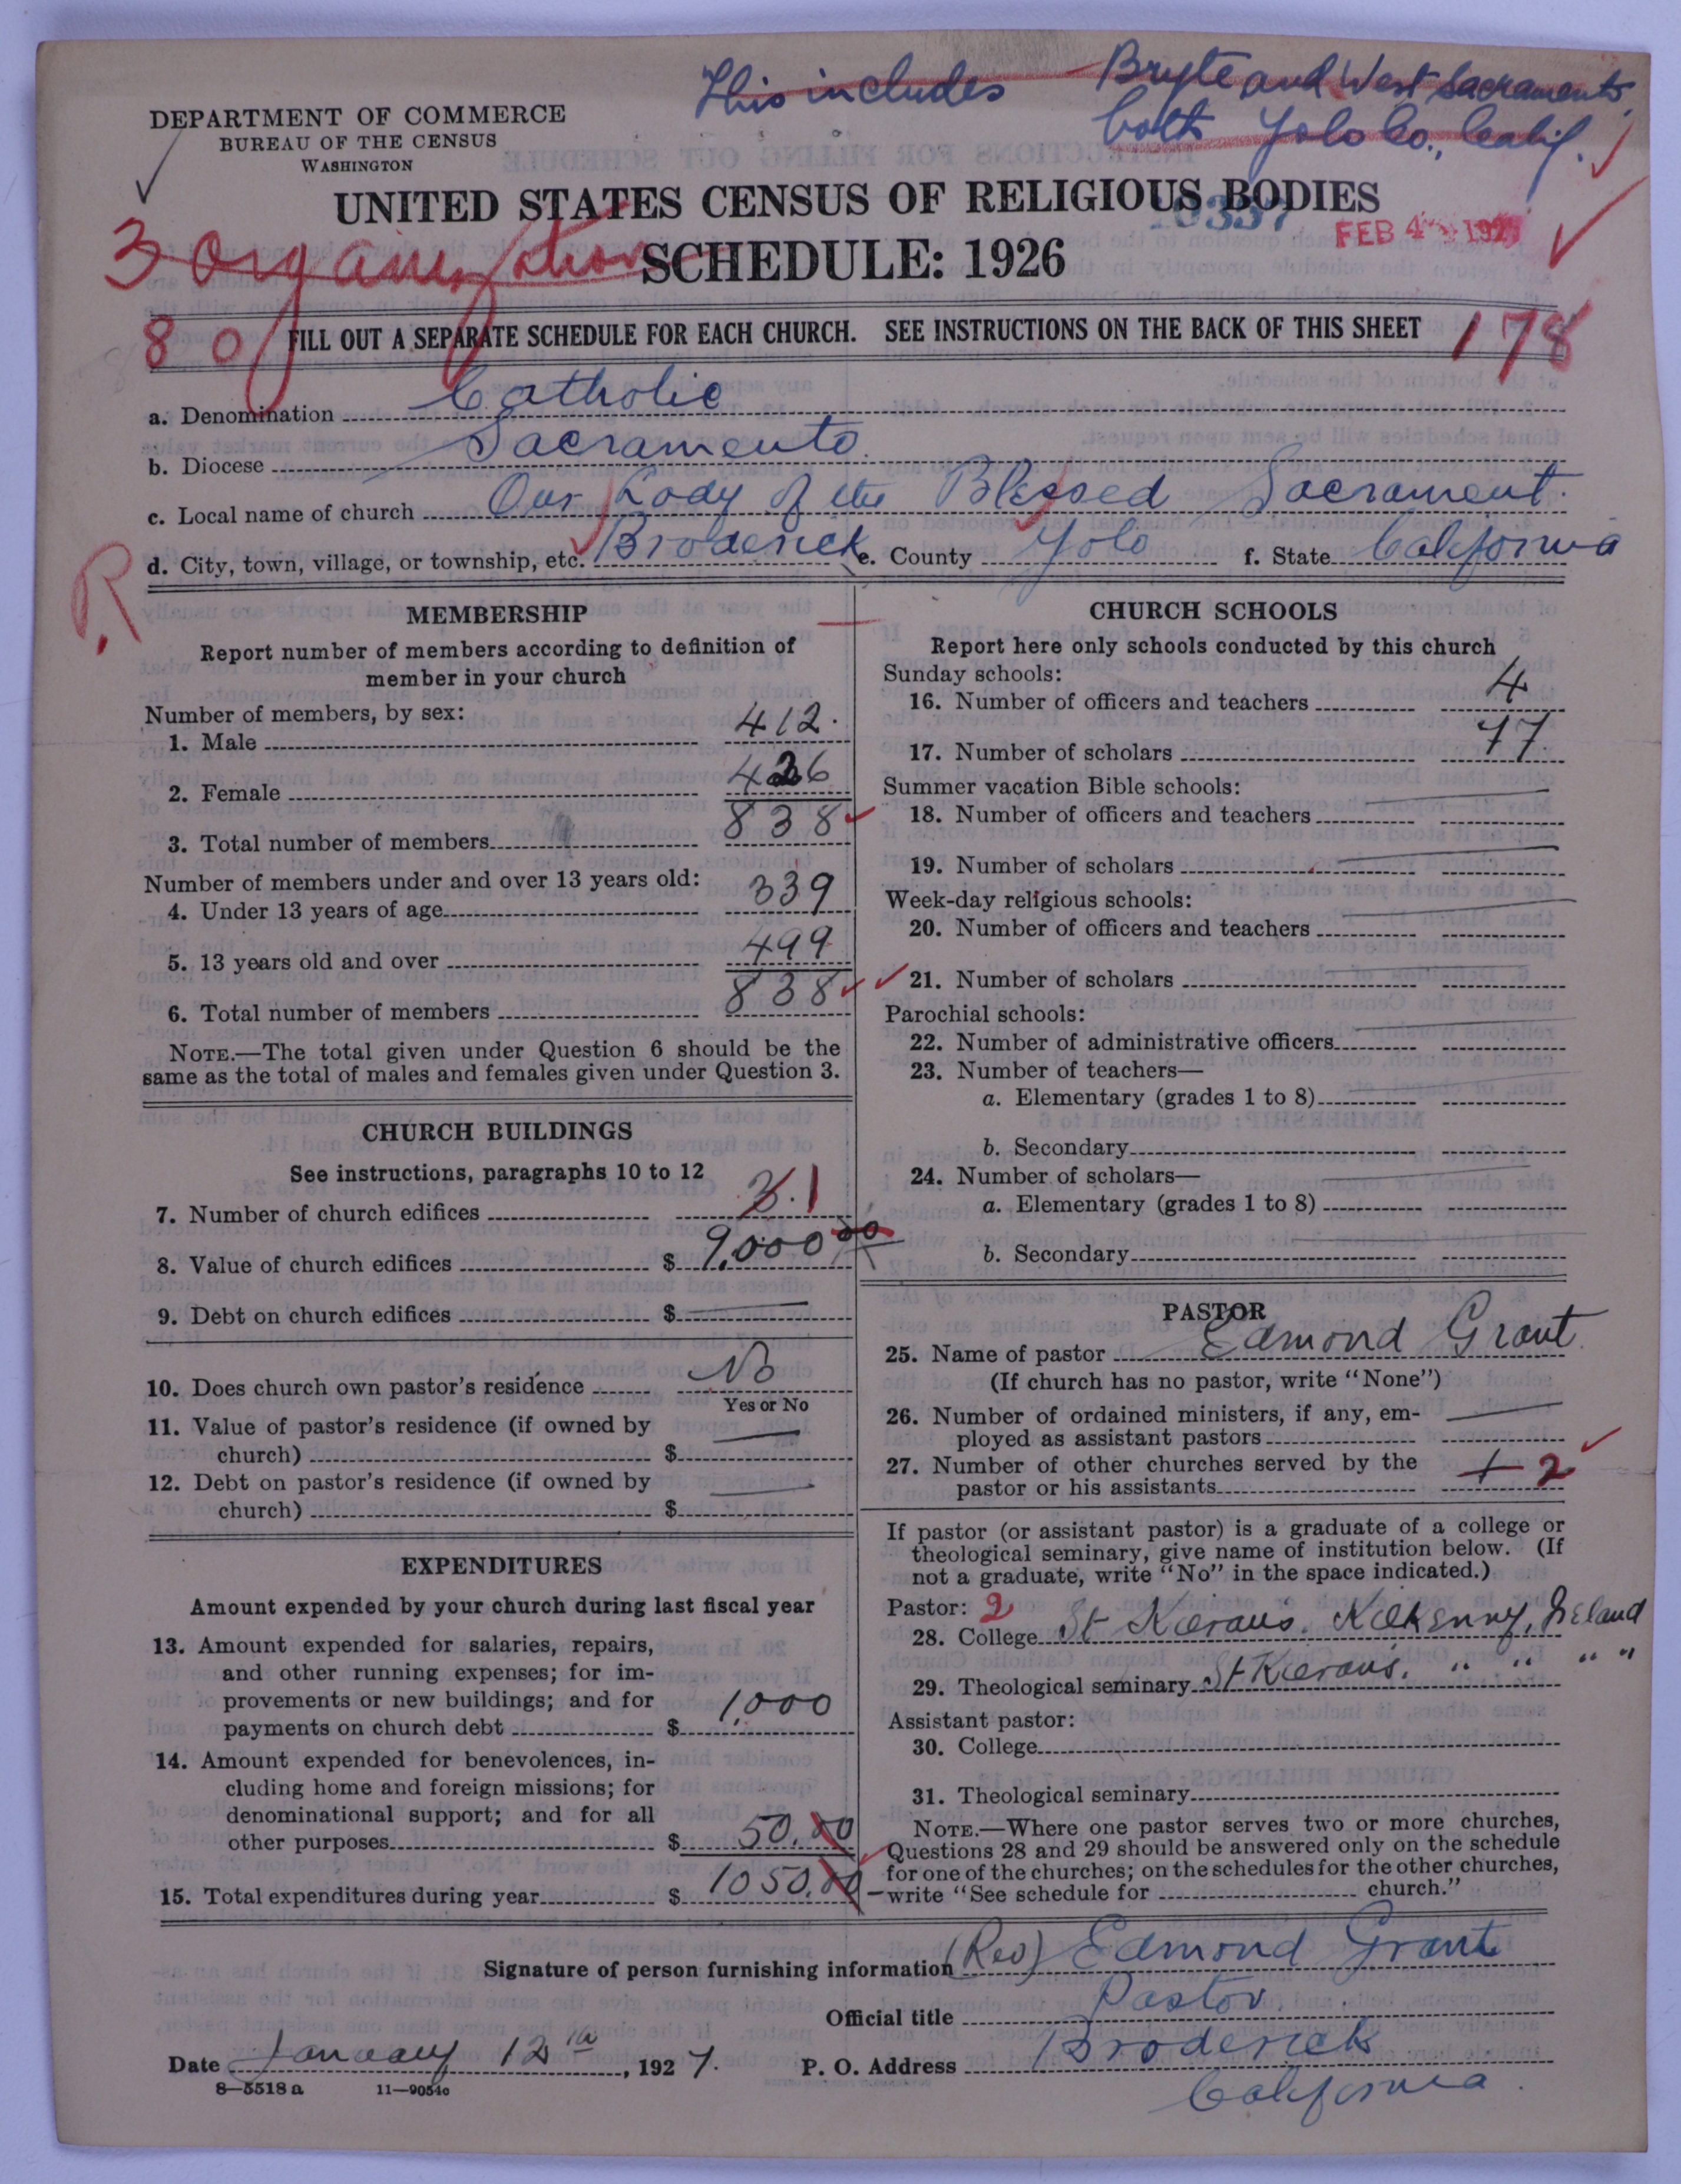 This includes Bryte and West Sacramento,
both Yolo Co., Calif.
DEPARTMENT OF COMMERCE
BUREAU OF THE CENSUS
WASHINGTON
UNITED STATES CENSUS OF RELIGIOUS BODIES
FEB 4
3 organization SCHEDULE: 1926
80 FILL OUT A SEPARATE SCHEDULE FOR EACH CHURCH. SEE INSTRUCTIONS ON THE BACK OF THIS SHEET 178
a. Denomination Catholic
b. Diocese Sacramento.
c. Local name of church Our Lady of the Blessed Sacrament.
d. City, town, village, or township, etc. Broderick e. County Yolo f. State California
R
MEMBERSHIP
Report number of members according to definition of
member in your church
Number of members, by sex:
1. Male 412.
2. Female 426
3. Total number of members 838
Number of members under and over 13 years old:
4. Under 13 years of age 339
5. 13 years old and over 499
6. Total number of members 838
NOTE.—The total given under Question 6 should be the
same as the total of males and females given under Question 3.
CHURCH BUILDINGS
See instructions, paragraphs 10 to 12
7. Number of church edifices 3. 1
8. Value of church edifices $ 9,000 00
9. Debt on church edifices $
10. Does church own pastor's residence No
Yes or No
11. Value of pastor's residence (if owned by
church) $
12. Debt on pastor's residence (if owned by
church) $
EXPENDITURES
Amount expended by your church during last fiscal year
13. Amount expended for salaries, repairs,
and other running expenses; for im-
provements or new buildings; and for
payments on church debt $ 1,000
14. Amount expended for benevolences, in-
cluding home and foreign missions; for
denominational support; and for all
other purposes $ 50.00
15. Total expenditures during year $ 1050.00
CHURCH SCHOOLS
Report here only schools conducted by this church
Sunday schools:
16. Number of officers and teachers 4
17. Number of scholars 77.
Summer vacation Bible schools:
18. Number of officers and teachers
19. Number of scholars
Week-day religious schools:
20. Number of officers and teachers
21. Number of scholars
Parochial schools:
22. Number of administrative officers
23. Number of teachers—
a. Elementary (grades 1 to 8)
b. Secondary
24. Number of scholars—
a. Elementary (grades 1 to 8)
b. Secondary
PASTOR
25. Name of pastor Edmond Grant
(If church has no pastor, write "None")
26. Number of ordained ministers, if any, em-
ployed as assistant pastors
27. Number of other churches served by the
pastor or his assistants 2
If pastor (or assistant pastor) is a graduate of a college or
theological seminary, give name of institution below. (If
not a graduate, write "No" in the space indicated.)
Pastor: 2
28. College St Kieran's. Kilkenny, Ireland
29. Theological seminary St Kieran's. " " " "
Assistant pastor:
30. College
31. Theological seminary
NOTE.—Where one pastor serves two or more churches,
Questions 28 and 29 should be answered only on the schedule
for one of the churches; on the schedules for the other churches,
write "See schedule for church."
Signature of person furnishing information (Rev) Edmond Grant
Official title Pastor.
Date January 12th, 1927. P. O. Address Broderick
8—5518 a 11—9054c California.